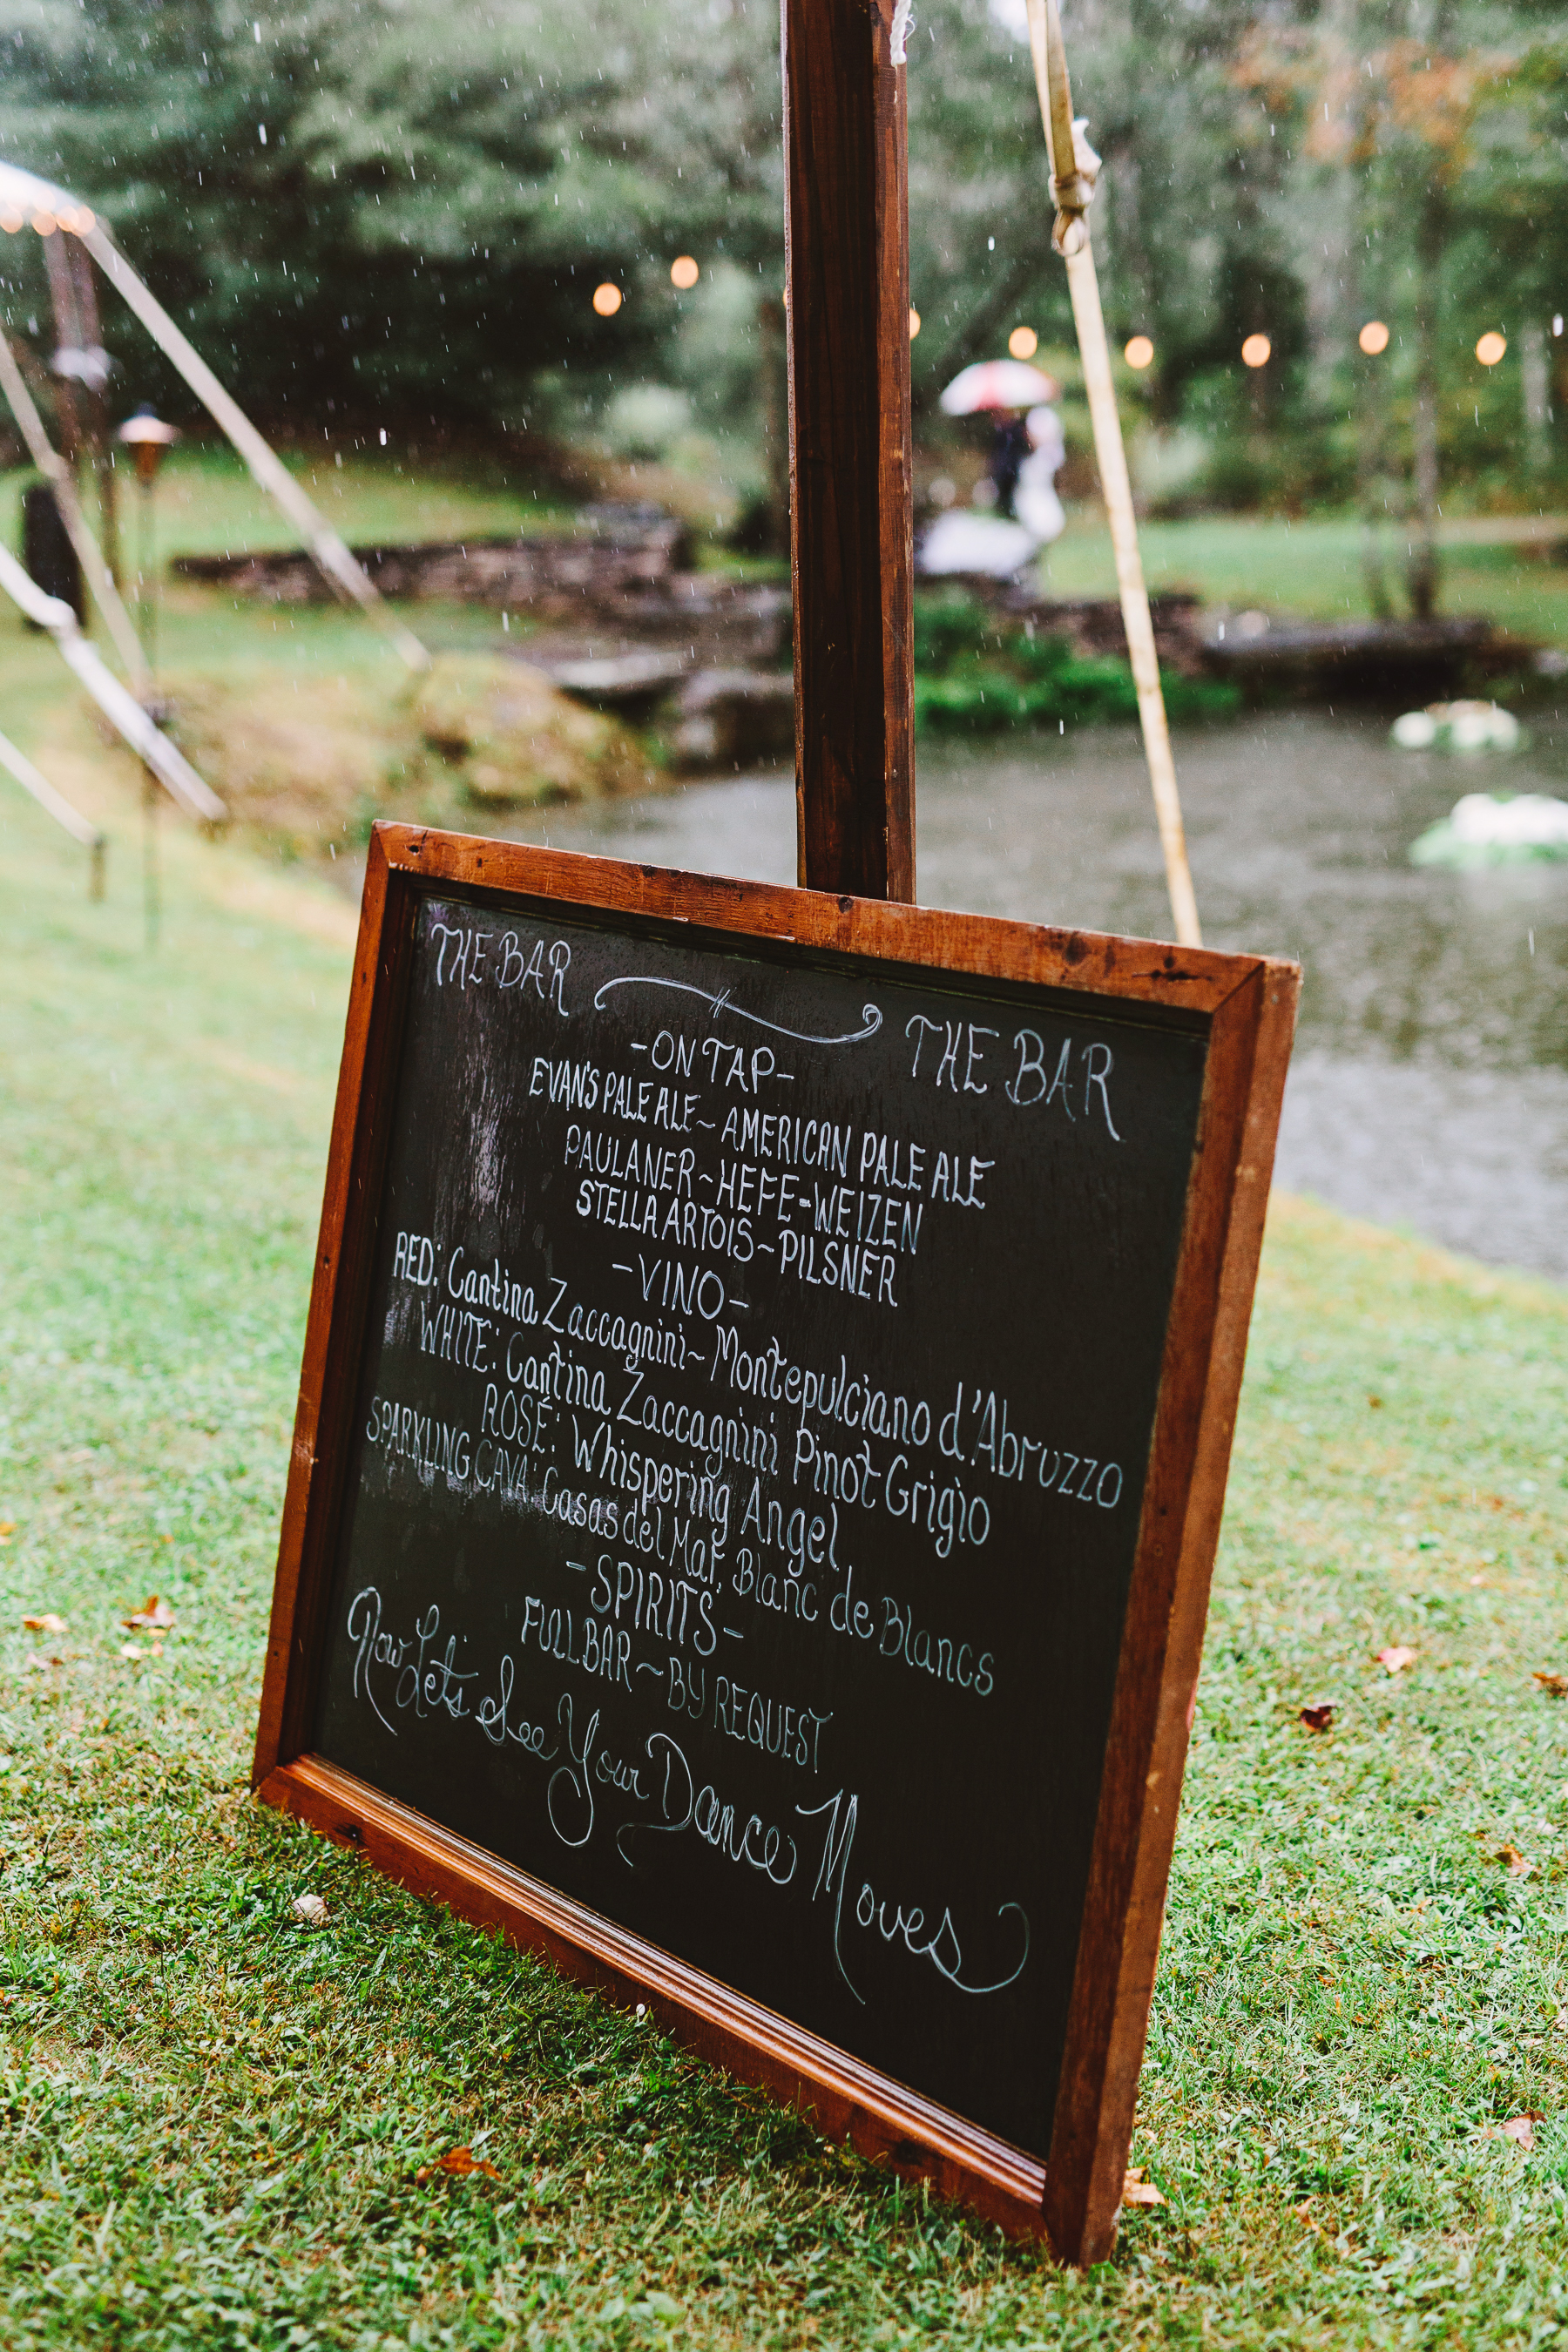 THE BAR THE BAR
-ON TAP-
EVAN'S PALE ALE ~ AMERICAN PALE ALE
PAULANER ~ HEFE-WEIZEN
STELLA ARTOIS ~ PILSNER
-VINO-
RED: Cantina Zaccagnini ~ Montepulciano d'Abruzzo
WHITE: Cantina Zaccagnini Pinot Grigio
ROSÉ: Whispering Angel
SPARKLING CAVA: Casas del Mar, Blanc de Blancs
-SPIRITS-
FULL BAR ~ BY REQUEST
Now Let's See Your Dance Moves